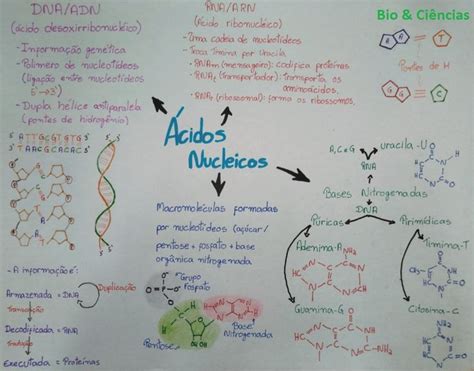 DNA/ADN
(ácido desoxirribonucleico)
- Informação genética
- Polímero de nucleotídeos
(ligação entre nucleotídeos
5'→3')
- Dupla hélice antiparalela
(pontes de hidrogênio)
5' A T T G C G T G T G 3'
3' T A A C G C A C A C 5'
RNA/ARN
(Ácido ribonucleico)
- Uma cadeia de nucleotídeos
- Troca Timina por Uracila
- RNAm (mensageiro): Codifica proteínas
- RNAt (transportador): transporta os
aminoácidos.
- RNAr (ribosomal): forma os ribossomos.
Bio & Ciências
A
T
G
C
Pontes de H
Ácidos
Nucleicos
Macromoléculas formadas
por nucleotídeos (açúcar/
pentose + fosfato + base
orgânica nitrogenada
Grupo
Fosfato
Base
Nitrogenada
Pentose
A, C e G
uracila - U
RNA
Bases Nitrogenadas
DNA
Púricas
Pirimídicas
Adenina - A
Timina - T
Guanina - G
Citosina - C
- A informação é:
Armazenada = DNA
Duplicação
Transcrição
Decodificada = RNA
Tradução
Executada = Proteínas